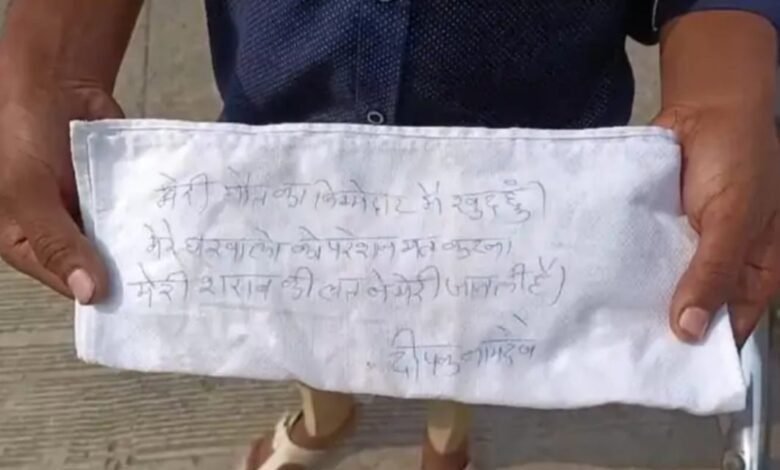 मेरी मौत का जिम्मेदार मै खुद हुँ।
मेरे घरवालो को परेशान मत करना
मेरी शराब की लत ने मेरी जान ली हैं।
दीपक नामदेव